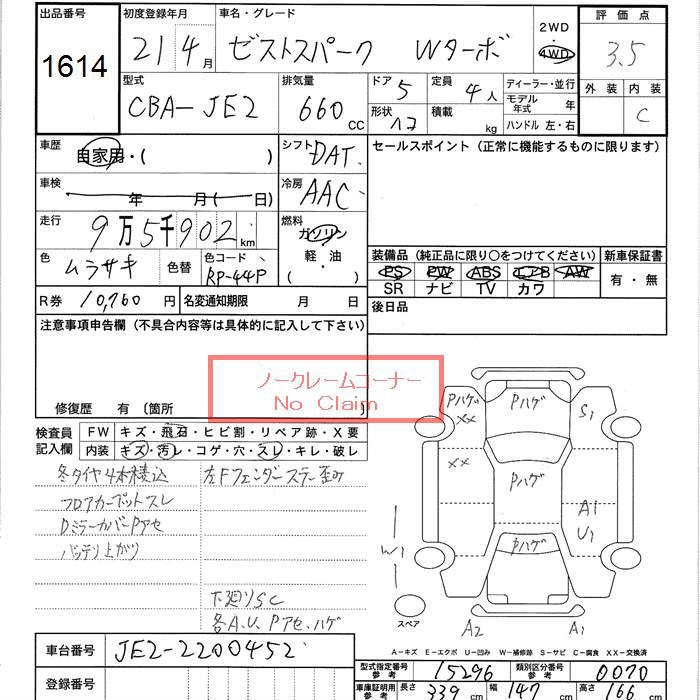 出品番号 初度登録年月 車名・グレード 2WD 評価点
1614 21 4月 ゼストスパーク Wターボ 4WD 3.5
型式 排気量 ドア 5 定員 4人 ディーラー・並行 外装 内装
CBA-JE2 660 CC 形状 積載 kg モデル年式 年 C
ハンドル 左・右
車歴 自家用・( ) シフト DAT セールスポイント(正常に機能するものに限ります)
車検 年 月( 日) 冷房 AAC
走行 9万5千902km 燃料 ガソリン
色 ムラサキ 色替 色コード RP-44P 軽油 ( )
装備品(純正品に限り○をつけてください) 新車保証書
PS PW ABS エアB AW 有・無
SR ナビ TV カワ
R券 10,760円 名変通知期限 月 日 後日品
注意事項申告欄(不具合内容等は具体的に記入して下さい)
ノークレームコーナー
No Claim
修復歴 有(箇所 )
検査員記入欄 FW キズ・飛石・ヒビ割・リペア跡・X要
内装 キズ・汚レ・コゲ・穴・スレ・キレ・破レ
冬タイヤ4本積込 左Fフェンダーステー歪め
フロアカーペットスレ
DミラーカバーPアセ
バッテリ上がり
下廻りSC
各A.U.Pアセ、ハゲ
Pハゲ Pハゲ S1
XX
XX
Pハゲ
A1
U1
Pハゲ
W1
スペア A2 A1
A-キズ E-エクボ U-凹み W-補修跡 S-サビ C-腐食 XX-交換済
車台番号 JE2-2200452
登録番号
型式指定番号 参考 15296 類別区分番号 参考 0070
車庫証明用 参考 長さ 339 cm 幅 147 cm 高さ 166 cm